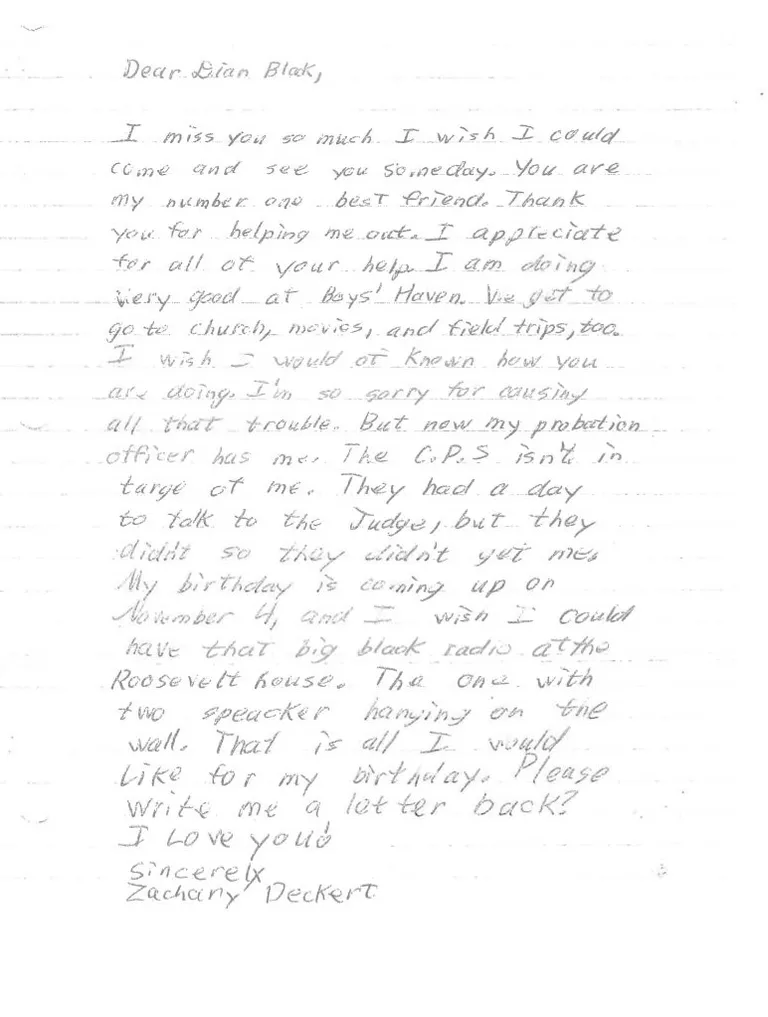 Dear Dian Blak,
I miss you so much I wish I could
come and see you someday. You are
my number one best friend. Thank
you for helping me out. I appreciate
for all of your help. I am doing
very good at Boys' Haven. We get to
go to church, movies, and field trips, too.
I wish I would of known how you
are doing. I'm so sorry for causing
all that trouble. But now my probation
officer has me. The C.P.S isn't in
targe of me. They had a day
to talk to the Judge, but they
didn't so they didn't get me.
My birthday is coming up on
November 4, and I wish I could
have that big black radio at the
Roosevelt house. The one with
two speacker hanging on the
wall. That is all I would
like for my birthday. Please
write me a letter back?
I Love you!
Sincerely
Zachary Deckert